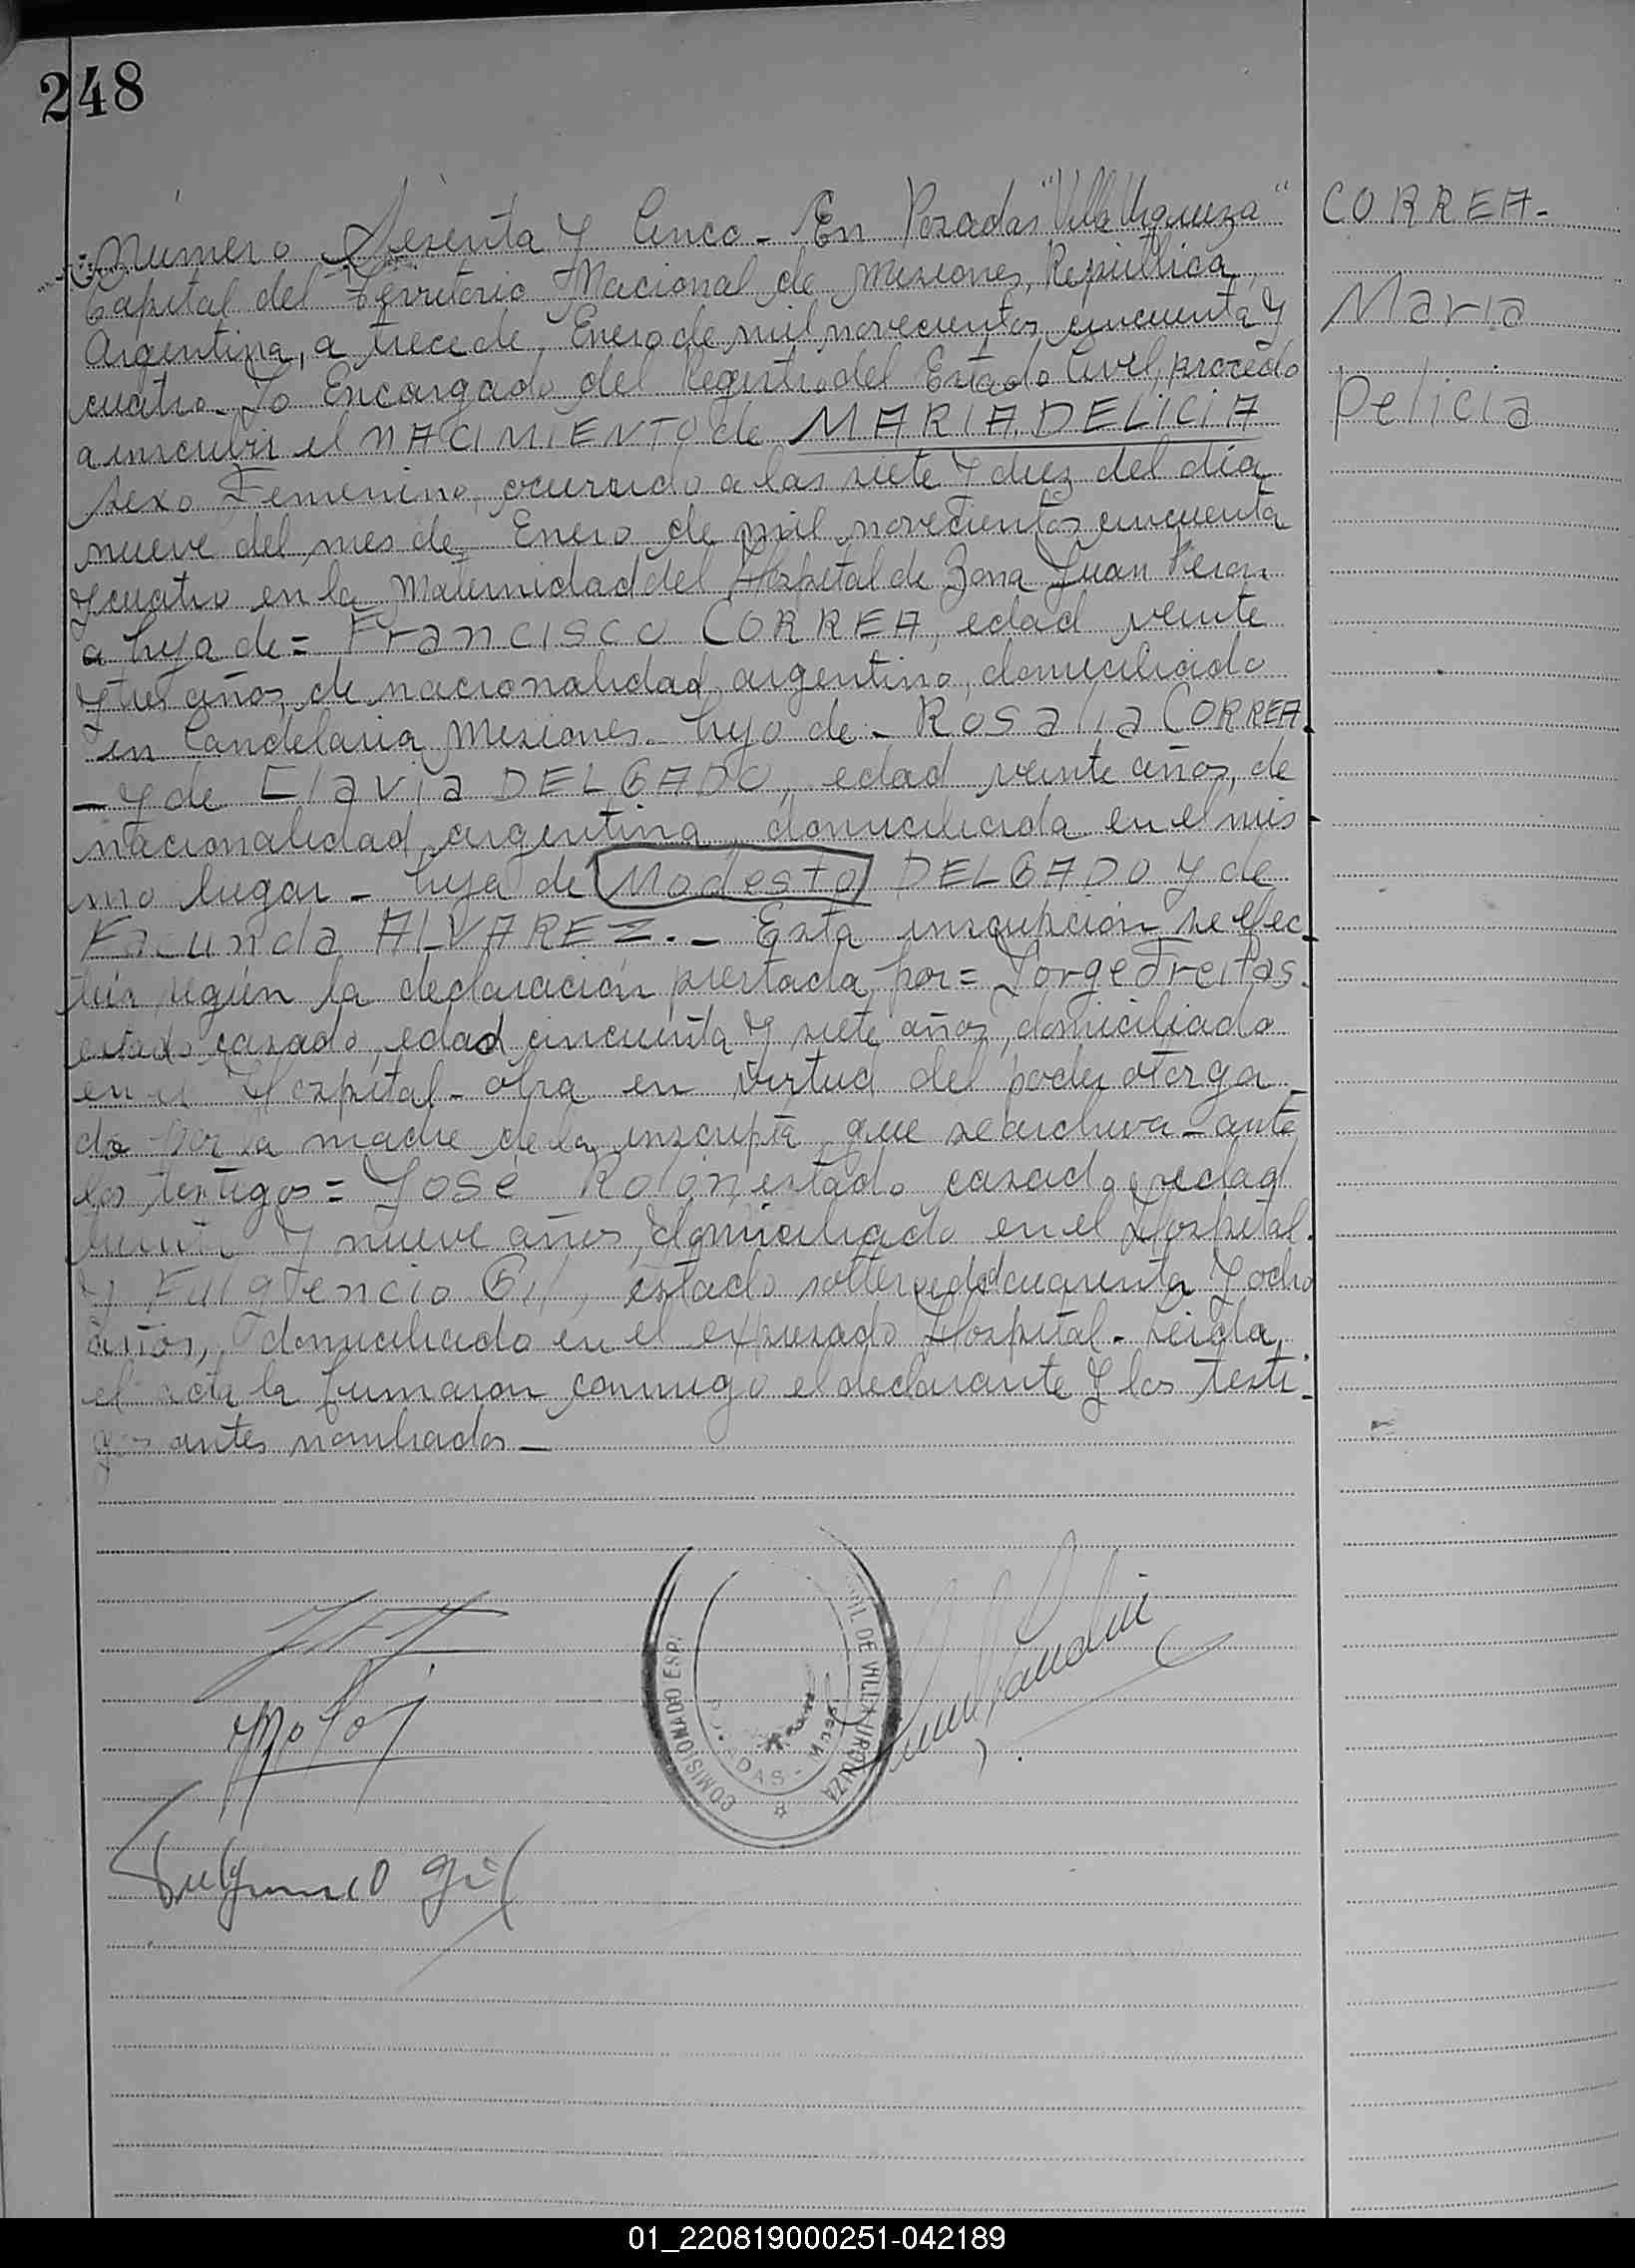 248
Número Sesenta y Cinco - En Posadas "Villa Urquiza"
Capital del Territorio Nacional de Misiones, República
Argentina, a trece de Enero de mil novecientos cincuenta y
cuatro. Yo Encargado del Registro del Estado Civil, procedo
a inscribir el NACIMIENTO de MARIA DELICIA
sexo Femenino, ocurrido a las siete y diez del día
nueve del mes de Enero de mil novecientos cincuenta
y cuatro en la Maternidad del Hospital de Zona Juan Peron
a hija de = Francisco CORREA, edad veinte
y tres años, de nacionalidad argentino, domiciliado
en Candelaria Misiones. hijo de - Rosalia CORREA
- y de Clavia DELGADO, edad veinte años, de
nacionalidad argentina, domiciliada en el mis
mo lugar - hija de Modesto DELGADO y de
Facunda ALVAREZ. - Esta inscripción se efec
túa según la declaración prestada por = Jorge Freitas.
estado casado, edad cincuenta y siete años, domiciliado
en el Hospital - obra en virtud del poder otorga
do por la madre de la inscripta que se archiva - ante
los testigos = José Rolón, estado casado, edad
y nueve años, domiciliado en el Hospital.
y Fulgencio Gil, estado soltero edad cuarenta y ocho
años, domiciliado en el expresado Hospital - Leida
el acta la firmaron conmigo el declarante y los testi-
gos antes nombrados -
CORREA -
Maria
Delicia
COMISIONADO ESP.
CIVIL DE VILLA URQUIZA
POSADAS - Mnes.
Fulgencio Gil
01_220819000251-042189